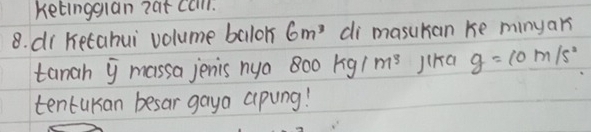 ketinggian zat cair.
8. di ketahui volume balok 6m³ di masukan ke minyak
tanah ȳ massa jenis nya 800 kg/m³ jika g = 10 m/s²
tentukan besar gaya apung!